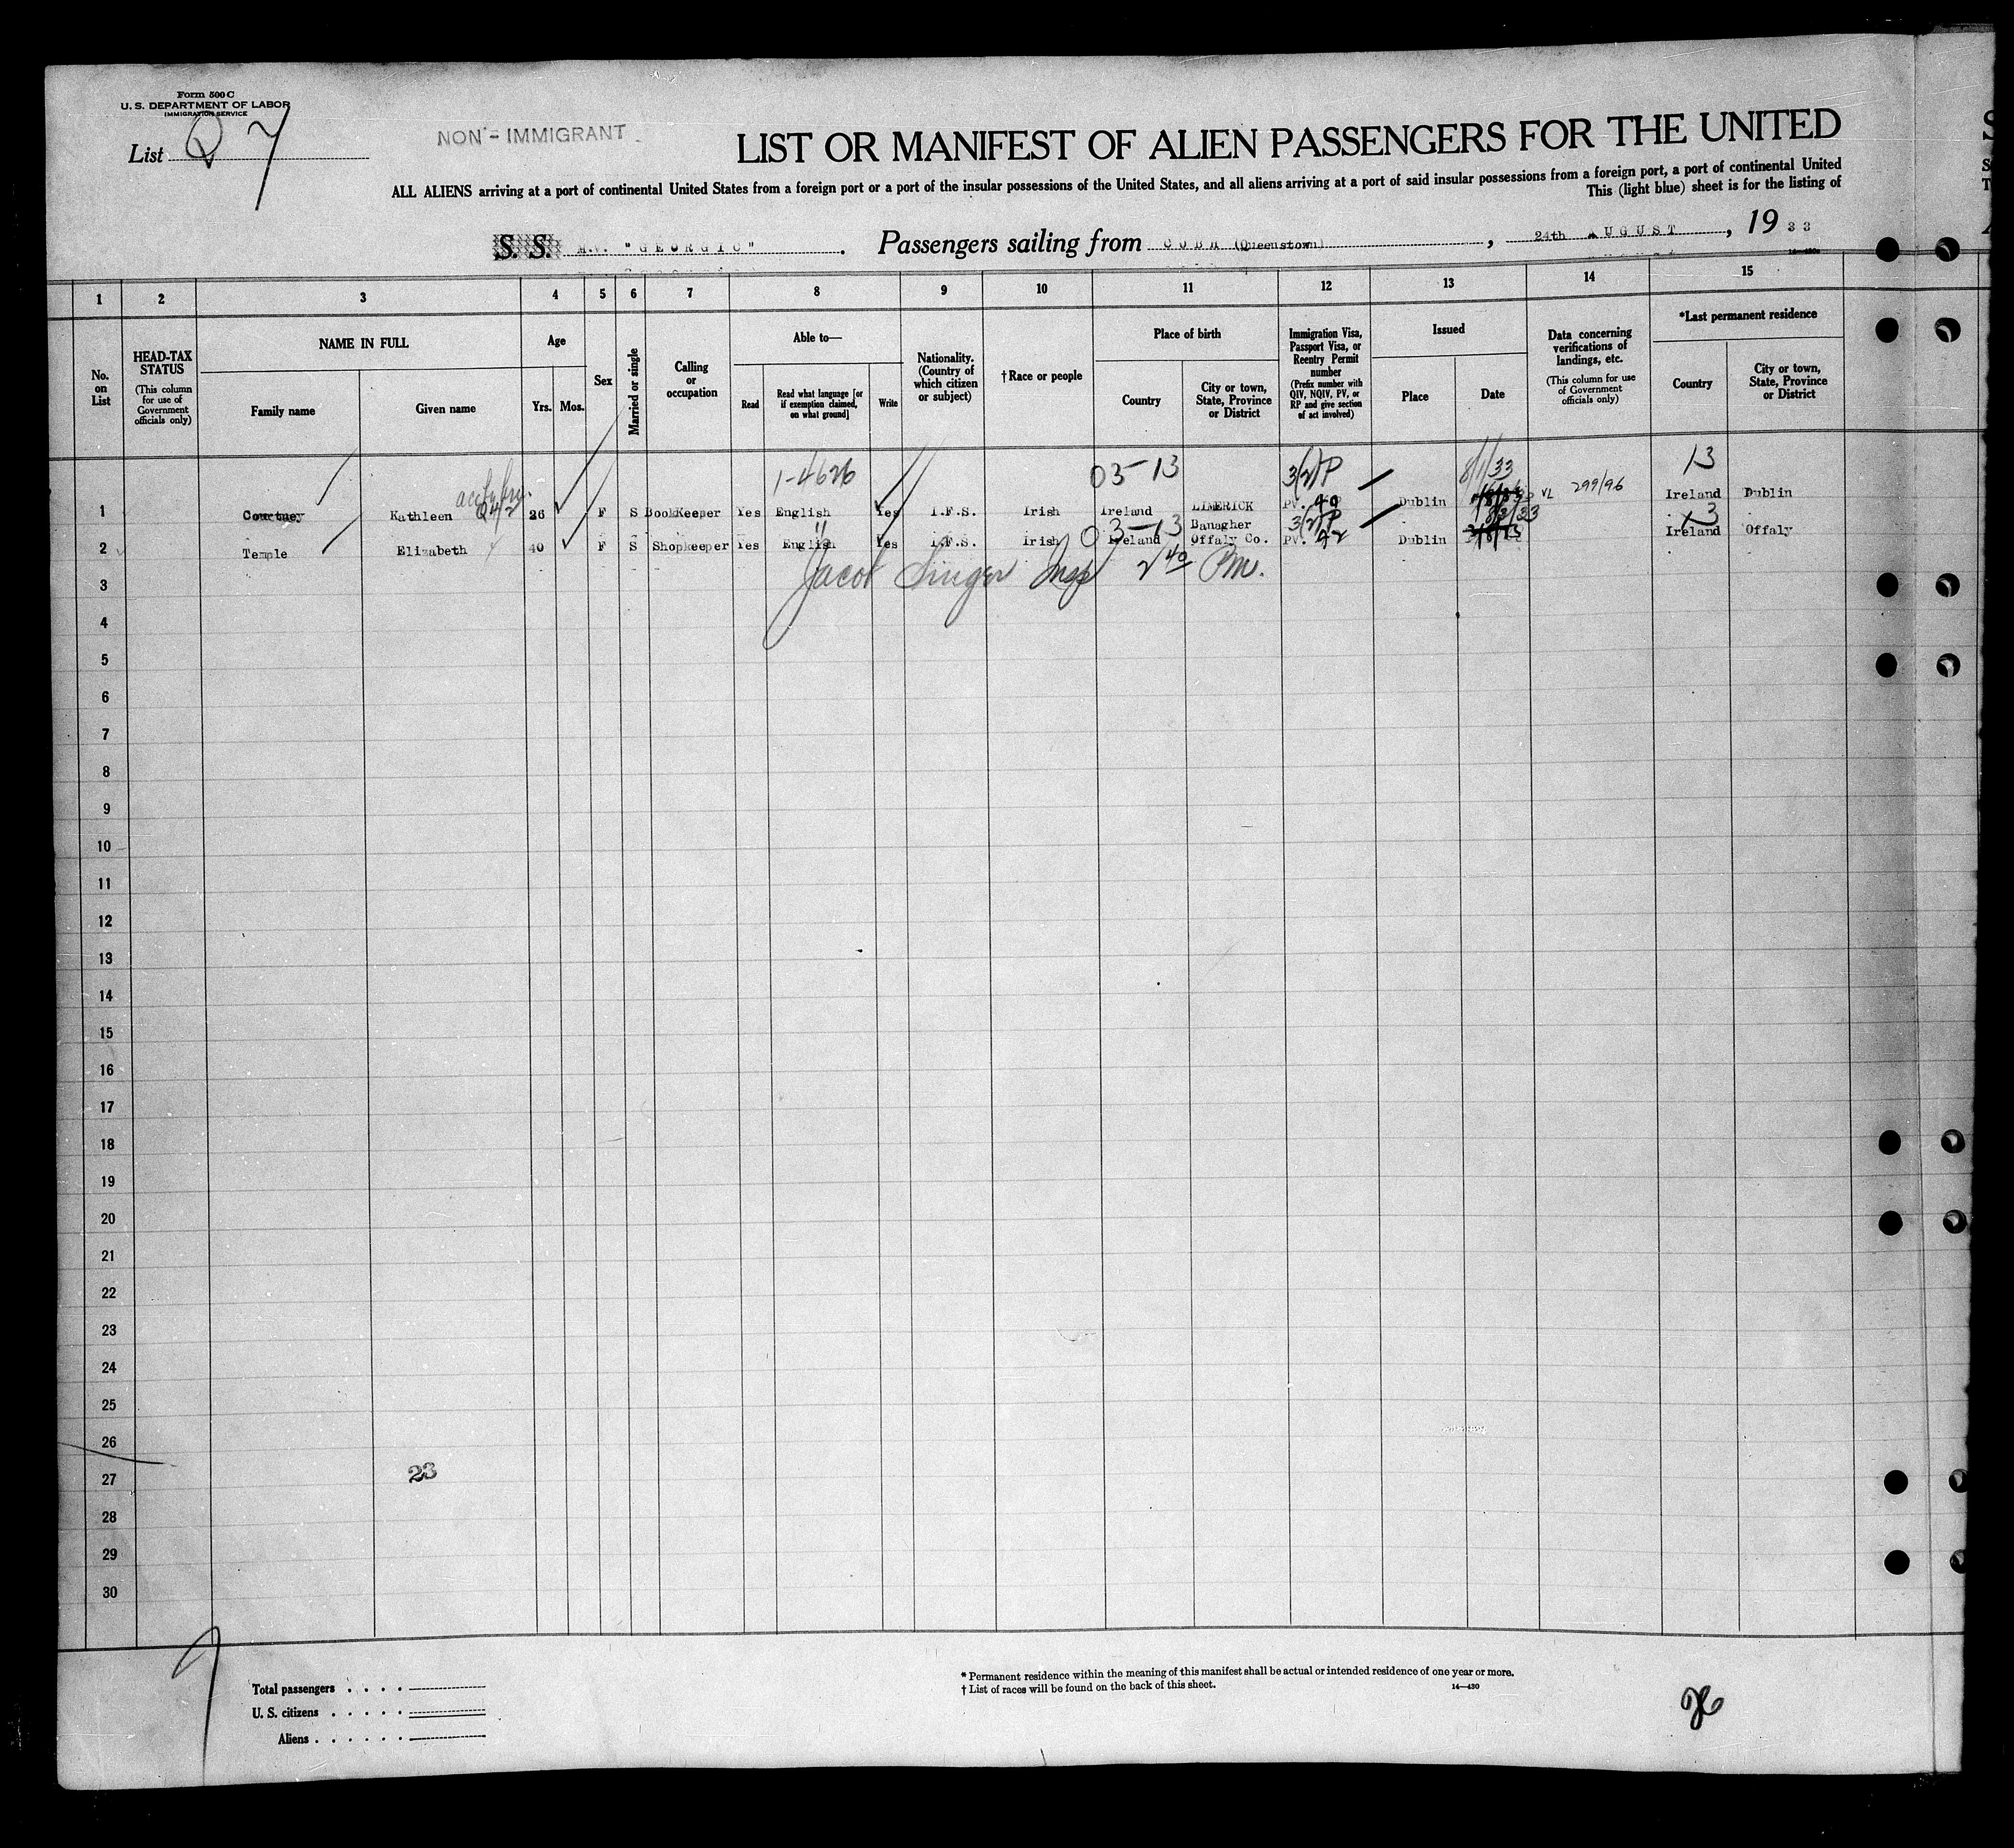 Form 500 C
U. S. DEPARTMENT OF LABOR
IMMIGRATION SERVICE
List Q 7
NON - IMMIGRANT
LIST OR MANIFEST OF ALIEN PASSENGERS FOR THE UNITED
ALL ALIENS arriving at a port of continental United States from a foreign port or a port of the insular possessions of the United States, and all aliens arriving at a port of said insular possessions from a foreign port, a port of continental United
This (light blue) sheet is for the listing of
S. S. M.V. "GEORGIC". Passengers sailing from COBH (Queenstown), 24th AUGUST, 19 33
1 2 3 4 5 6 7 8 9 10 11 12 13 14 15
No. on List
HEAD-TAX STATUS
(This column for use of Government officials only)
NAME IN FULL
Family name
Given name
Age
Yrs.
Mos.
Sex
Married or single
Calling or occupation
Able to—
Read
Read what language [or if exemption claimed, on what ground]
Write
Nationality. (Country of which citizen or subject)
†Race or people
Place of birth
Country
City or town, State, Province or District
Immigration Visa, Passport Visa, or Reentry Permit number
(Prefix number with QIV, NQIV, PV, or RP and give section of act involved)
Issued
Place
Date
Data concerning verifications of landings, etc.
(This column for use of Government officials only)
*Last permanent residence
Country
City or town, State, Province or District
1-4626 03-13 3(2)P 8/1/33 13
VL 299/96
1 Courtney Kathleen 26 F S BookKeeper Yes English Yes I.F.S. Irish Ireland LIMERICK PV. Dublin Ireland Dublin
03-13 3(2)P 13
2 Temple Elizabeth 40 F S Shopkeeper Yes English Yes I.F.S. Irish Ireland Banagher Offaly Co. PV. Dublin Ireland Offaly
Jacob Singer Insp 2 40 Pm.
3
4
5
6
7
8
9
10
11
12
13
14
15
16
17
18
19
20
21
22
23
24
25
26
27 23
28
29
30
Total passengers . . . .
U. S. citizens . . . . .
Aliens . . . . . .
* Permanent residence within the meaning of this manifest shall be actual or intended residence of one year or more.
† List of races will be found on the back of this sheet.
14—430